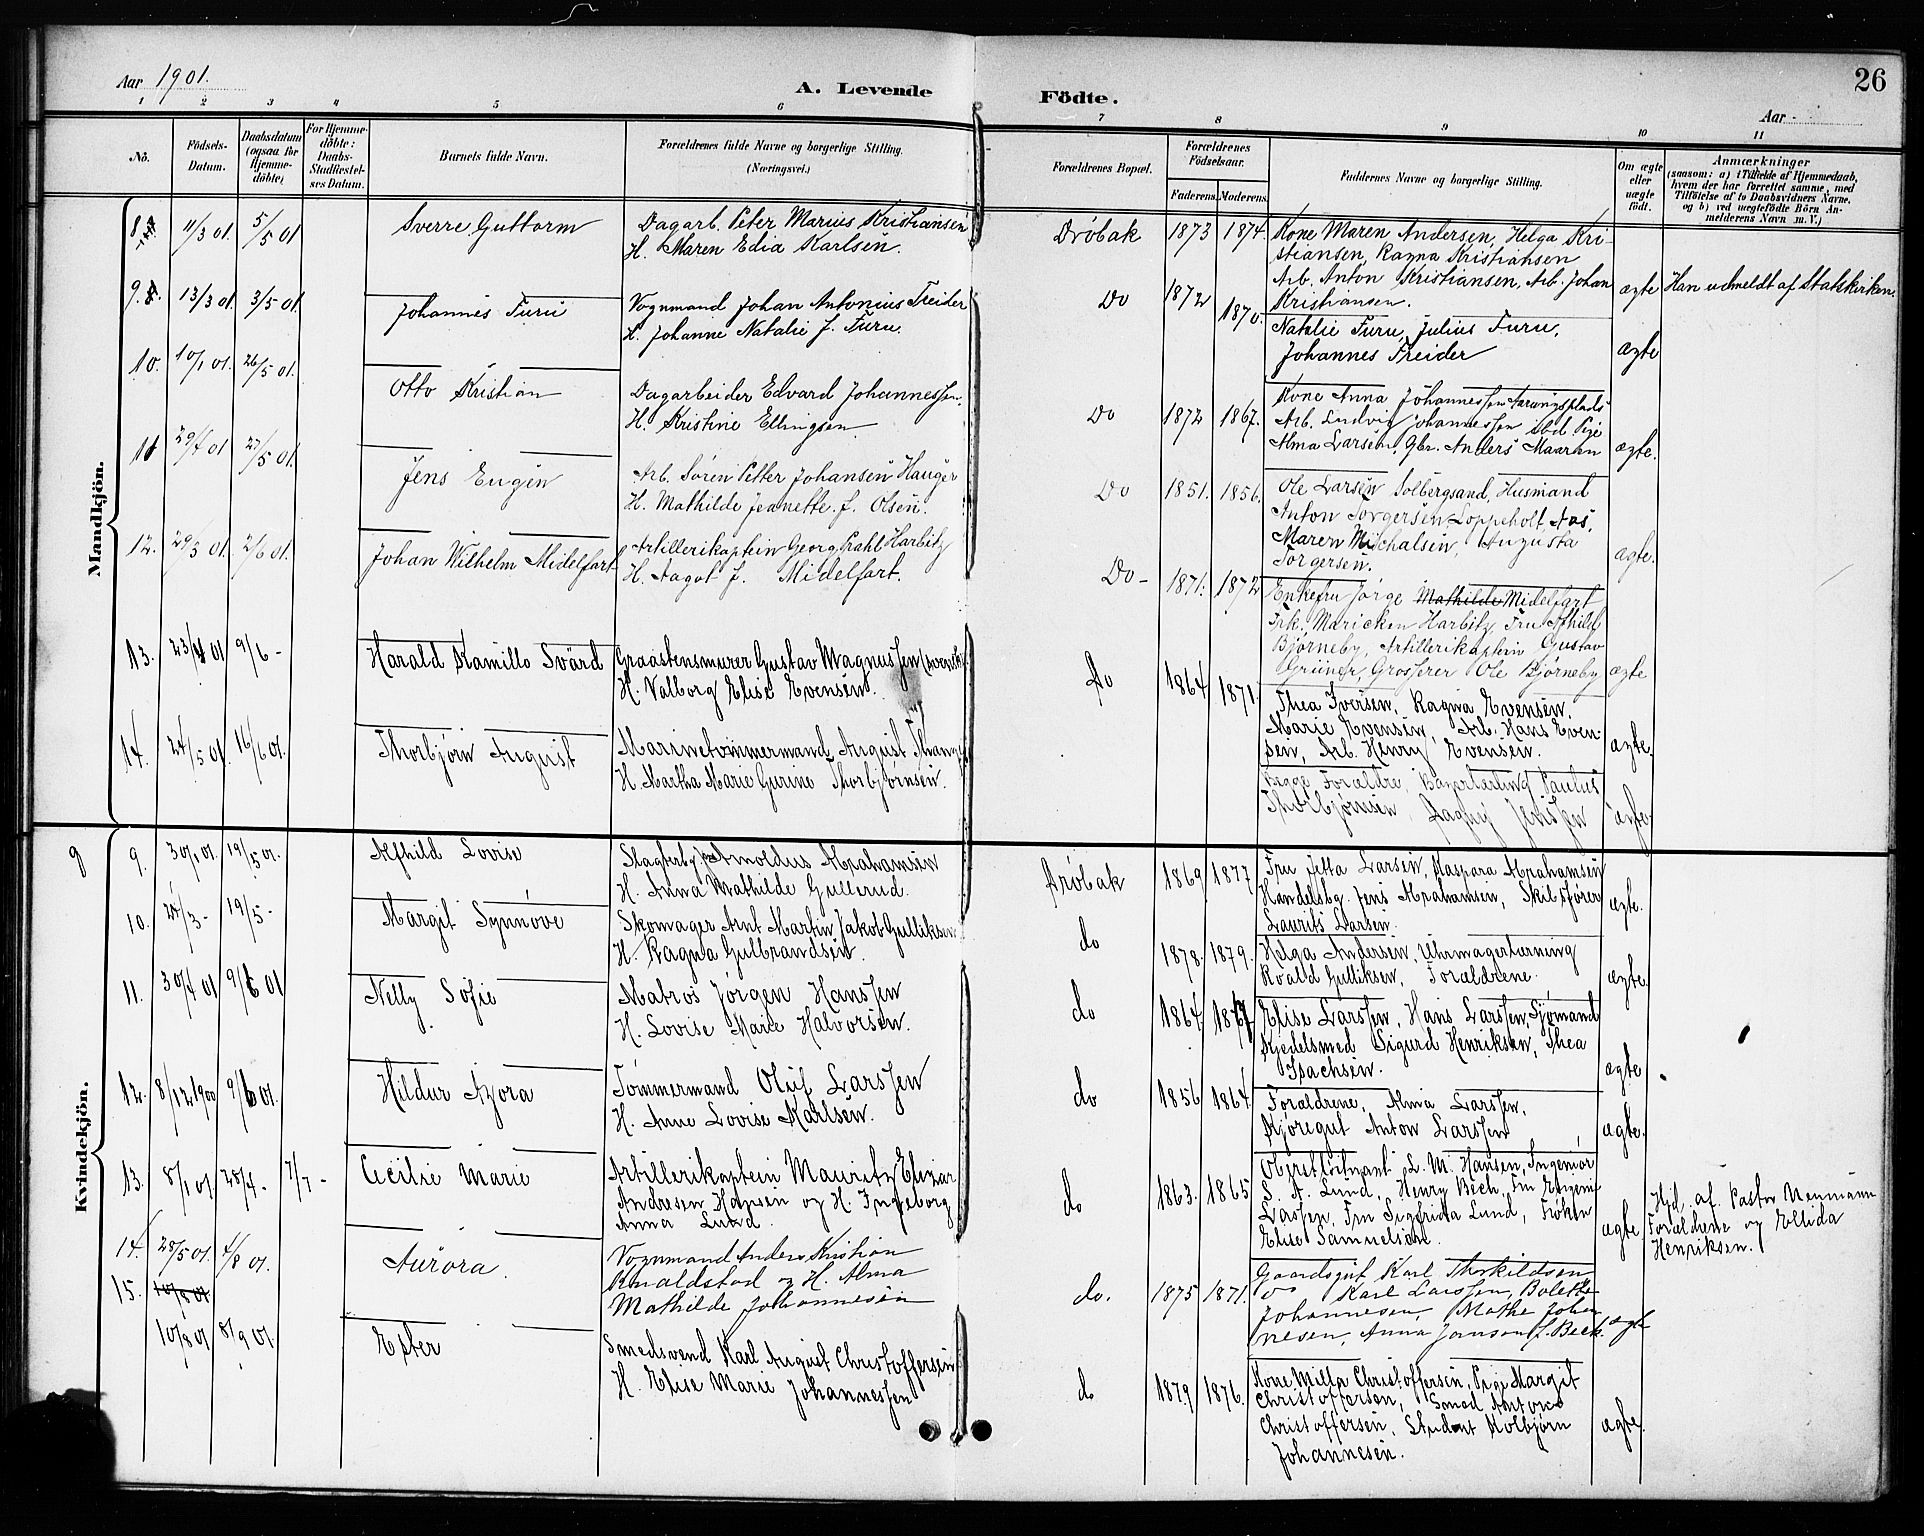 Aar 1901.
A. Levende Födte.
26
Aar
1 2 3 4 5 6 7 8 9 10 11
No.
Födsels-Datum.
Daabsdatum (ogsaa for Hjemme-döbte)
For Hjemme-döbte: Daabs-Stadfæstel-ses Datum.
Barnets fulde Navn.
Forældrenes fulde Navne og borgerlige Stilling. (Næringsvei.)
Forældrenes Bopæl.
Forældrenes Födselsaar.
Faderens. Moderens.
Faddernes Navne og borgerlige Stilling.
Om ægte eller uægte födt.
Anmærkninger
(saasom: a) i Tilfælde af Hjemmedaab,
hvem der har forrettet samme, med
Tilföielse af to Daabsvidners Navne,
og b) ved uægtefödte Börn An-
melderens Navn m. V.)
Mandkjön.
8. 11/3 01. 5/5 01 Sverre Guttorm
Dagarb. Peter Marius Kristiansen
H. Maren Edia Karlsen.
Dröbak 1873 1874.
Kone Maren Andersen, Helga Kri-
stiansen, Ragna Kristiansen
Arb. Anton Kristiansen, Arb. Johan
Kristiansen.
ægte Han udmeldt af Statskirken.
9. 13/3 01. 3/5 01. Johannes Furu
Vognmand Johan Antonius Treider
H. Johanne Natalie f. Furu.
Do 1872 1870.
Natalie Furu, Julius Furu,
Johannes Treider
ægte
10. 10/1 01. 26/5 01. Otto Kristian
Dagarbeider Edvard Johannessen.
H. Kristine Ellingsen.
Do 1872 1867.
Kone Anna Johannessen
Arb. Ludvig Johannessen ibd Pige
Alma Larsen, Gbr. Anders Maaren
ægte.
11 29/4 01 27/5 01. Jens Eugen
Arb. Sören Petter Johansen Hauger
H. Mathilde Jeanette f. Olsen.
Do 1851. 1856.
Ole Larsen Solbergsand, Husmand
Anton Torgersen Loppeholt Aas,
Maren Michalsen, Augusta
Torgersen.
ægte.
12. 29/3 01. 2/6 01. Johan Wilhelm Midelfart
Artillerikaptein Georg Prahl Harbitz
H. Aagot f. Midelfart.
Do - 1871. 1872
Enkefru Jörge Mathilde Midelfart
Frk. Maricken Harbitz, Fru Afhild
Björneby, Artillerikaptein Gustav
Grüner, Grosserer Ole Björneby
ægte
13. 23/4 01 9/6 - Harald Kamillo Svärd
Graastensmurer Gustav Magnussen (svensk).
H. Valborg Elise Evensen.
Do 1864 1871.
Thea Iversen, Ragna Evensen,
Marie Evensen, Arb. Hans Even-
sen, Arb. Henry Evensen.
ægte.
14. 24/5 01. 16/6 01. Thorbjörn August
Marinetömmermand August
H. Martha Marie Gurine Thorbjörnsen.
Begge Forældre, Paulus
Thorbjörnsen, Jenssen
ægte.
Kvindekjön.
9
9. 30/1 01. 19/5 01. Alfhild Lovise
Arnoldus Abrahamsen
H. Anna Mathilde Gullerud.
Dröbak 1869 1877
Fru Jetta Larsen, Kaspara Abrahamsen
Handelsbg. Jens Abrahamsen, Skibsförer
Laurits Larsen.
ægte.
10. 19/5 - Margit Synnöve
Skomager Arnt Martin Jakob Gulliksen
H. Ragna Gulbrandsen.
do 1878. 1879.
Helga Andersen, Uhrmagerlærning
Roald Gulliksen, Forældrene.
ægte.
11. 30/4 01 9/6 01 Nelly Sofie
Matros Jörgen Hanssen
H. Lovise Marie Halvorsen.
do 1864 1867
Elise Larssen, Hans Larssen, Sjömand
Kjedelsmed Sigurd Henriksen, Thea
Isachsen.
ægte
12. 8/12 1900 9/6 01. Hildur Azora
Tömmermand Oluf Larssen
H. Anne Lovise Karlsen.
do 1856 1864.
Forældrene, Alma Larssen,
Kjöregut Anton Larssen
ægte.
13. 8/1 01. 28/4 - 7/7 - Cecilie Marie
Artillerikaptein Mauritz Elizar
Andresen Hansen og H. Ingeborg
Anna Lund.
do 1863. 1865
Oberstlöitnant L. M. Hansen, Ingeniör
S. A. Lund, Henry Bech, Fru Eugeni
Larssen, Fru Sigfrida Lund, Fröken
Elise Samuelsen.
ægte
Hjd. af Pastor Neumann
Forældrene og Ellida
Henriksen.
14. 28/5 01. 4/8 01. Aurora.
Vognmand Anders Kristian
Knaldstad og H. Alma
Mathilde Johannesen
do. 1875 1871.
Gaardsgut Karl Thorkildsen
Karl Larssen, Bolette
Johannesen, Mathe Johan-
nesen, Anna Janson f. Beck.
ægte
15. 10/8 01
10/8 01 8/9 01. Ester
Smedsvend Karl August Christoffersen
H. Elise Marie Johannessen
do 1879 1876.
Kone Milla Christoffersen, Pige Margit
Christoffersen, Smed Anton
Christoffersen, Student Kolbjörn
Johannesen.
ægte.